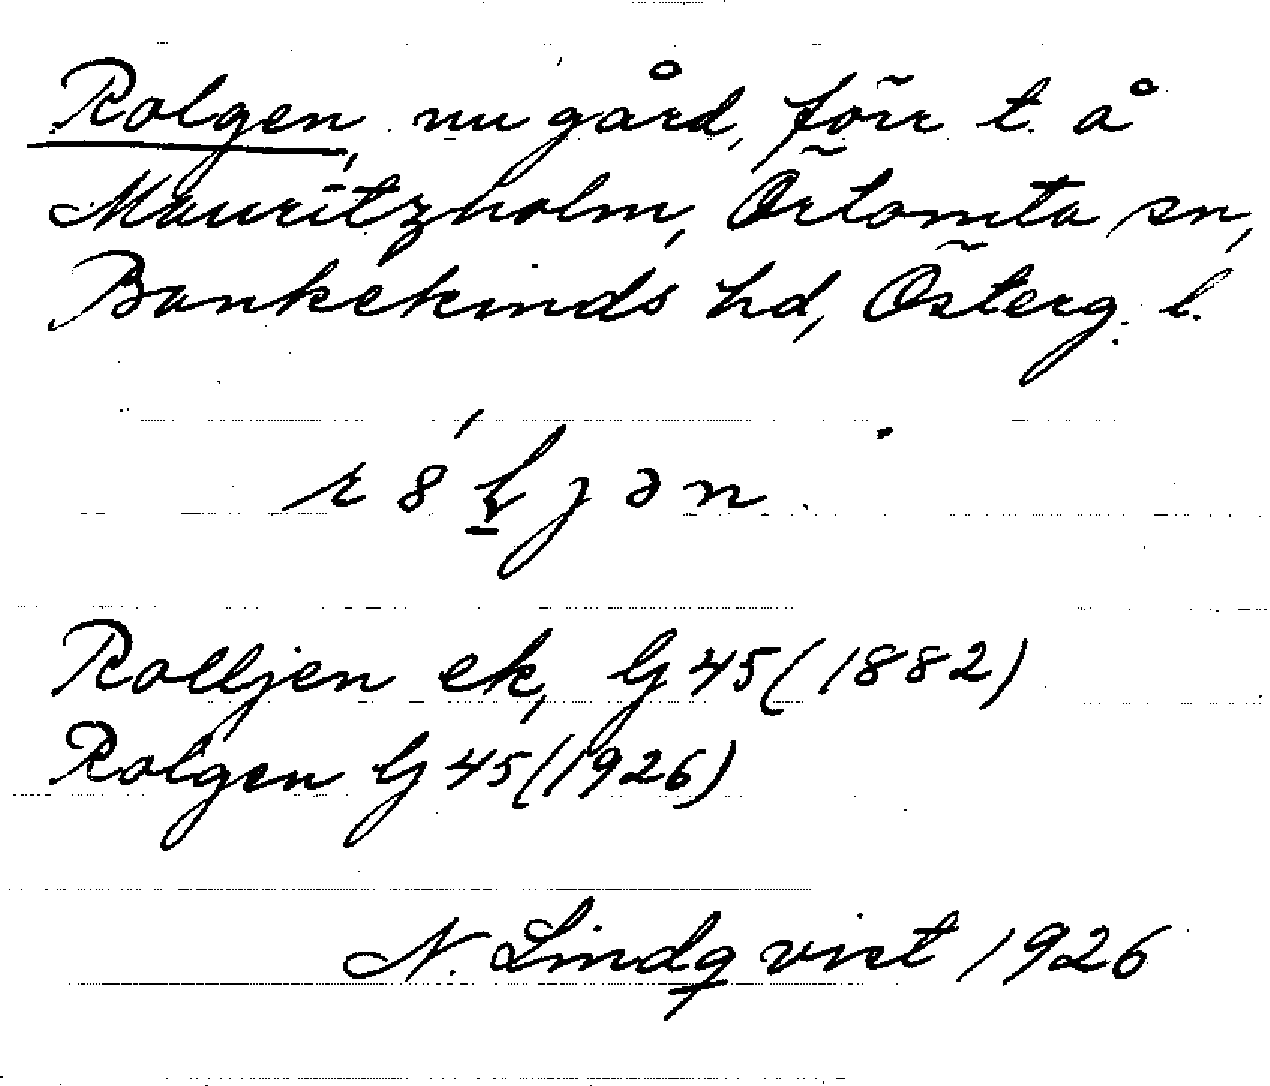 Rolgen, nu gård, förr t. å
Mauritzholm, Örtomta sn,
Bankekinds hd, Österg. l.
Rolljen ek, G 45 (1882)
Rolgen G 45 (1926)
N. Lindqvist 1926